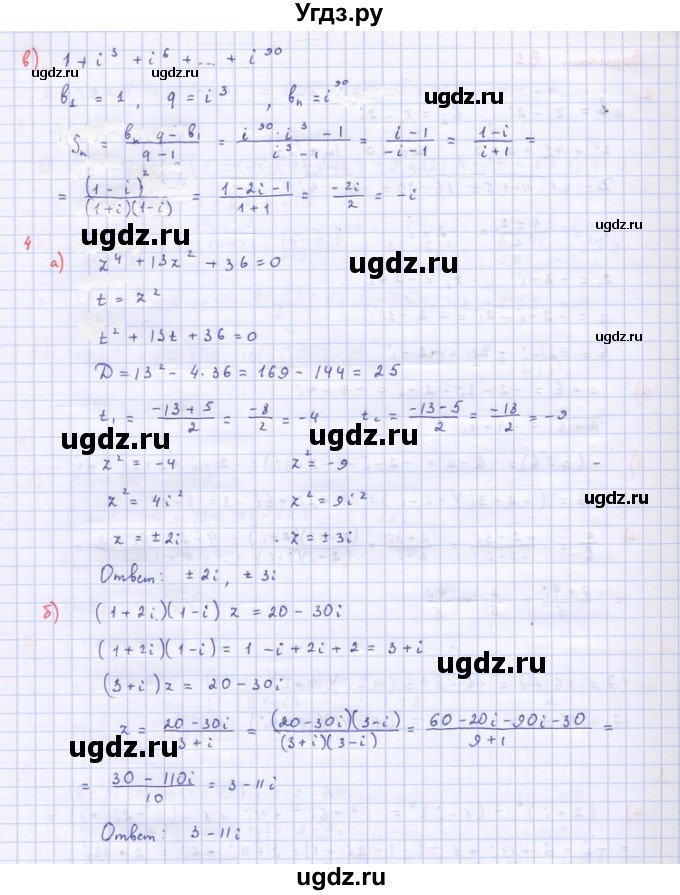 Угдз.ру
в) 1 + i³ + i⁶ + ... + i⁹⁰
ugdz.ru ugdz.ru ugdz.ru
b₁ = 1, q = i³, bₙ = i⁹⁰
Sₙ = (bₙ q - b₁)/(q - 1) = (i⁹⁰ · i³ - 1)/(i³ - 1) = (i - 1)/(-i - 1) = (1 - i)/(i + 1) =
= (1 - i)²/((1 + i)(1 - i)) = (1 - 2i - 1)/(1 + 1) = (-2i)/2 = -i
ugdz.ru ugdz.ru
4
а) z⁴ + 13z² + 36 = 0
ugdz.ru
t = z²
t² + 13t + 36 = 0
ugdz.ru
D = 13² - 4·36 = 169 - 144 = 25
t₁ = (-13 + 5)/2 = (-8)/2 = -4 t₂ = (-13 - 5)/2 = (-18)/2 = -9
ugdz.ru ugdz.ru
z² = -4 z² = -9
z² = 4i² z² = 9i²
ugdz.ru
z = ±2i z = ±3i
Ответ: ±2i, ±3i
ugdz.ru
б) (1 + 2i)(1 - i) z = 20 - 30i
(1 + 2i)(1 - i) = 1 - i + 2i + 2 = 3 + i
ugdz.ru
(3 + i) z = 20 - 30i
z = (20 - 30i)/(3 + i) = ((20 - 30i)(3 - i))/((3 + i)(3 - i)) = (60 - 20i - 90i - 30)/(9 + 1) =
ugdz.ru ugdz.ru
= (30 - 110i)/10 = 3 - 11i
Ответ: 3 - 11i
ugdz.ru ugdz.ru
ugdz.ru